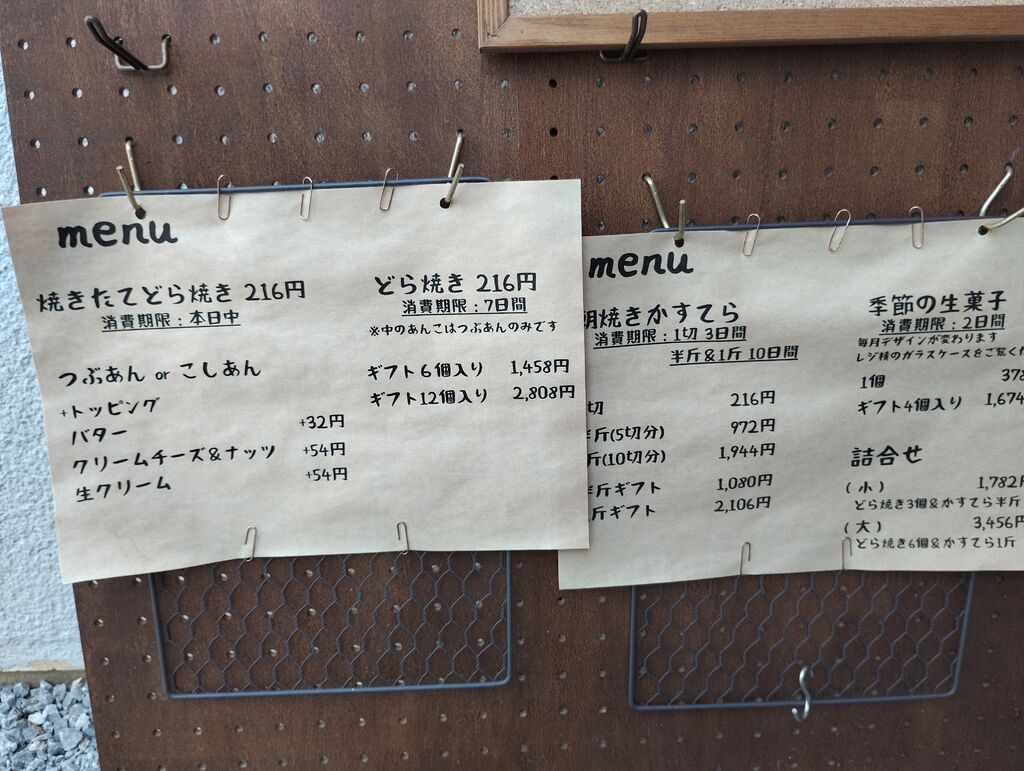 menu
焼きたてどら焼き 216円
消費期限：本日中
つぶあん or こしあん
+トッピング
バター +32円
クリームチーズ&ナッツ +54円
生クリーム +54円
どら焼き 216円
消費期限：7日間
※中のあんこはつぶあんのみです
ギフト6個入り 1,458円
ギフト12個入り 2,808円
menu
焼きかすてら
消費期限：1切 3日間
半斤&1斤 10日間
切 216円
斤(5切分) 972円
斤(10切分) 1,944円
斤ギフト 1,080円
斤ギフト 2,106円
季節の生菓子
消費期限：2日間
毎月デザインが変わります
レジ横のガラスケースをご覧くだ
1個 378
ギフト4個入り 1,674
詰合せ
(小) 1,782円
どら焼き3個&かすてら半斤
(大) 3,456円
どら焼き6個&かすてら1斤